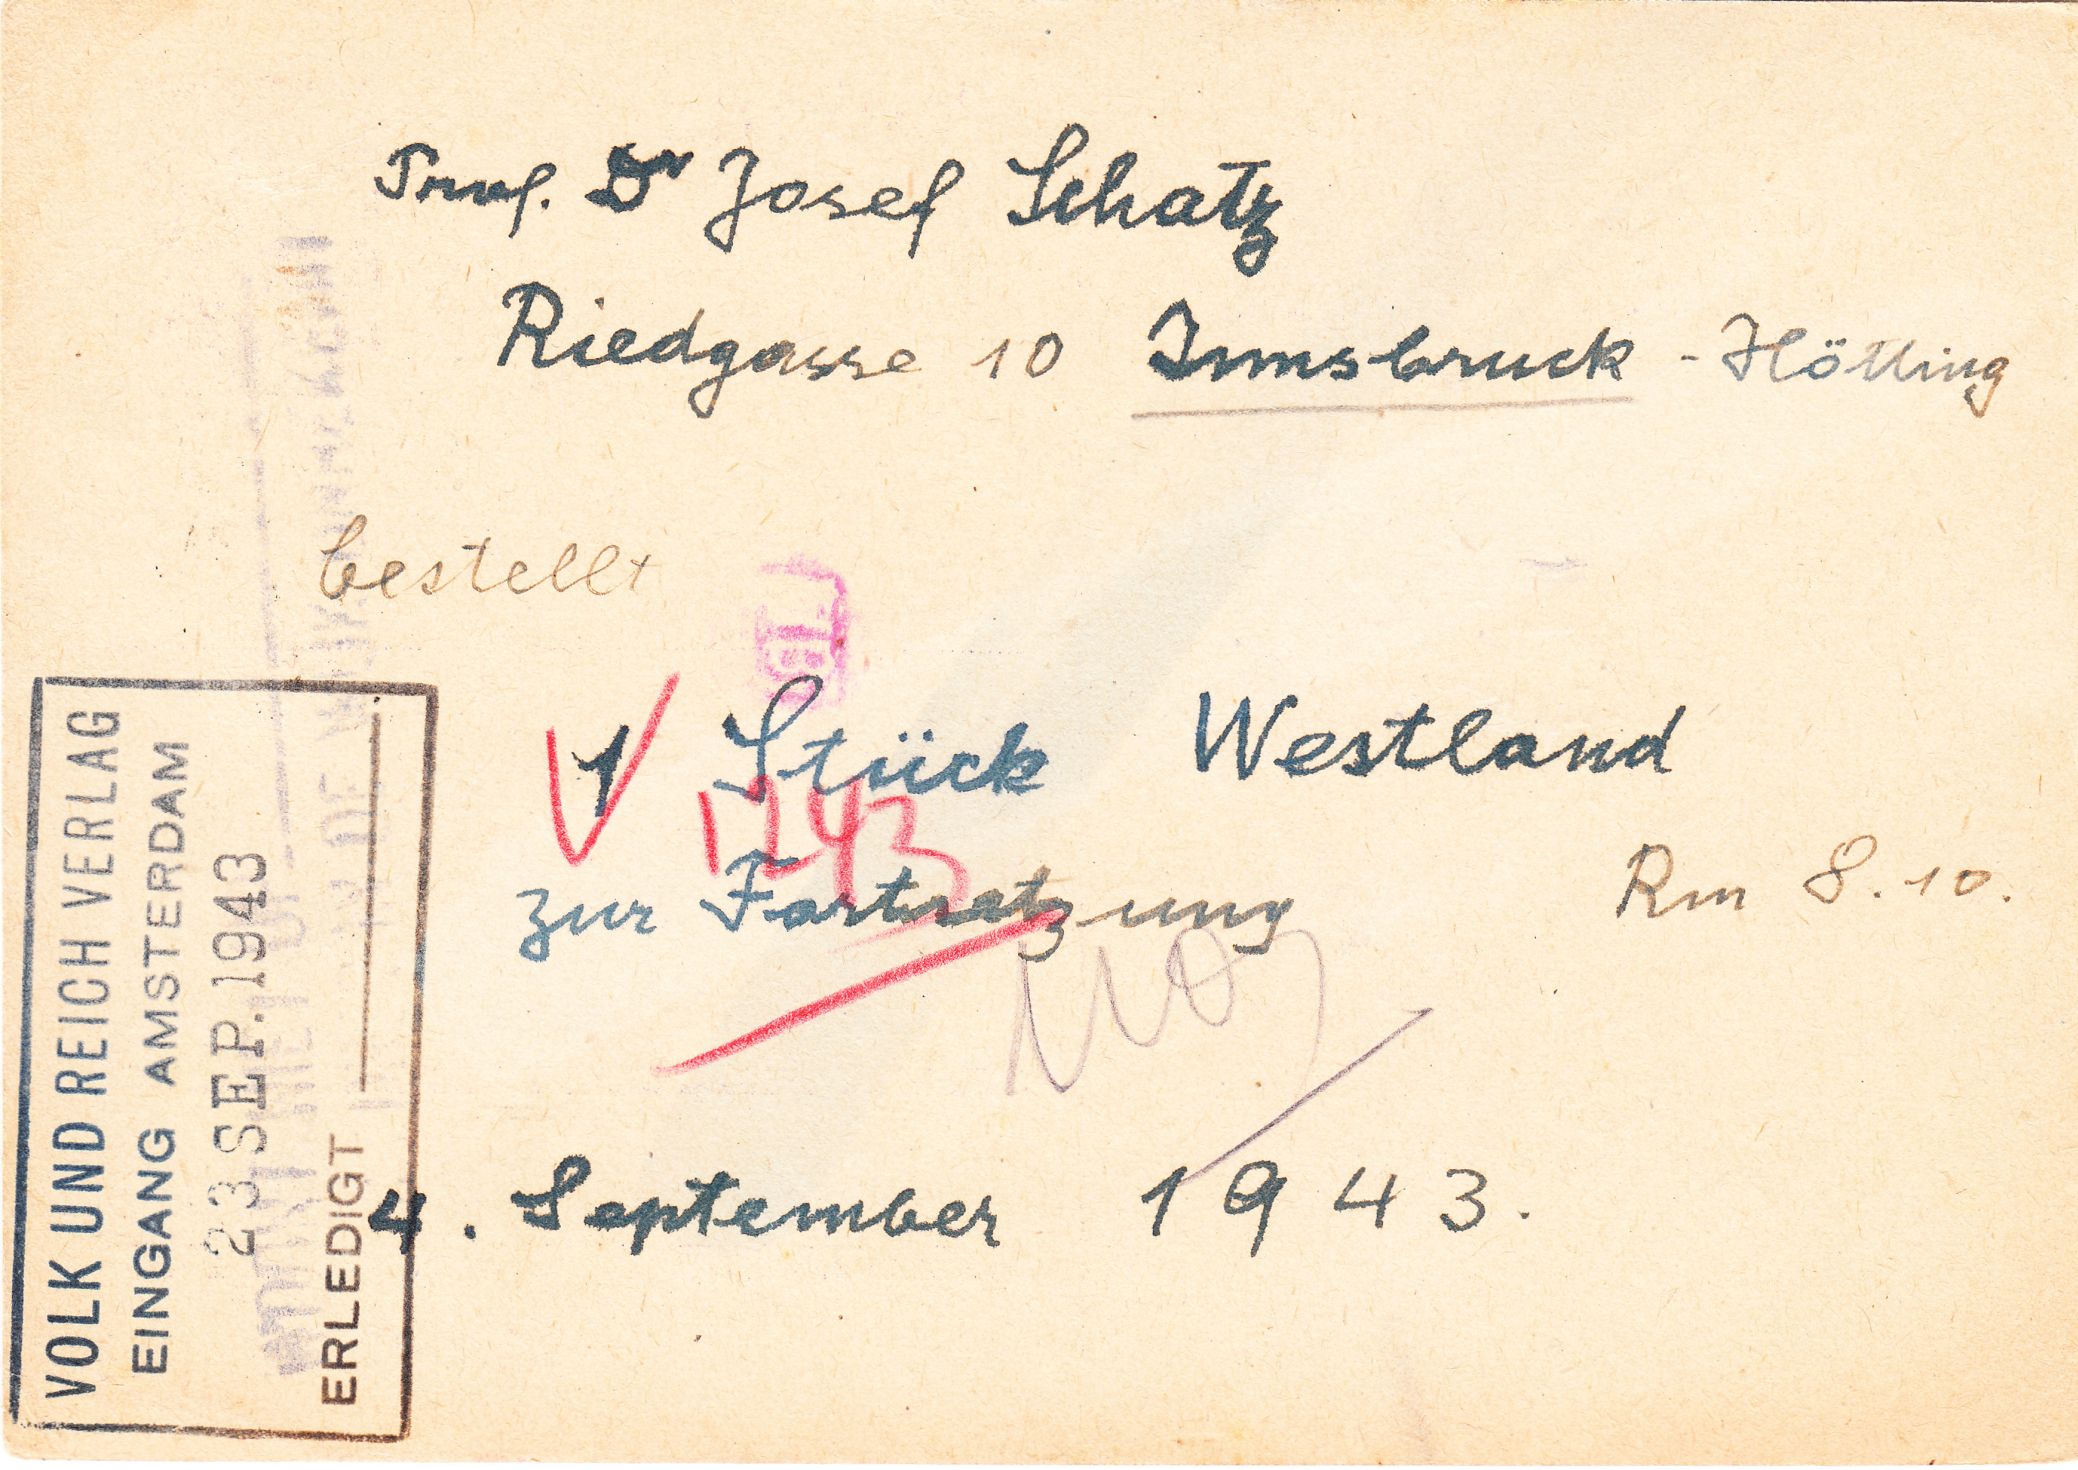 Prof. Dr Josef Schatz
Riedgasse 10 Innsbruck - Hötting
bestellt
1 Stück Westland
zur Fortsetzung Rm 8.10.
4. September 1943.
VOLK UND REICH VERLAG
EINGANG AMSTERDAM
23. SEP. 1943
ERLEDIGT